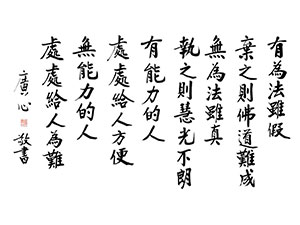 有為法雖假
棄之則佛道難成
無為法雖真
執之則慧光不朗
有能力的人
處處給人方便
無能力的人
處處給人為難
廣心敬書